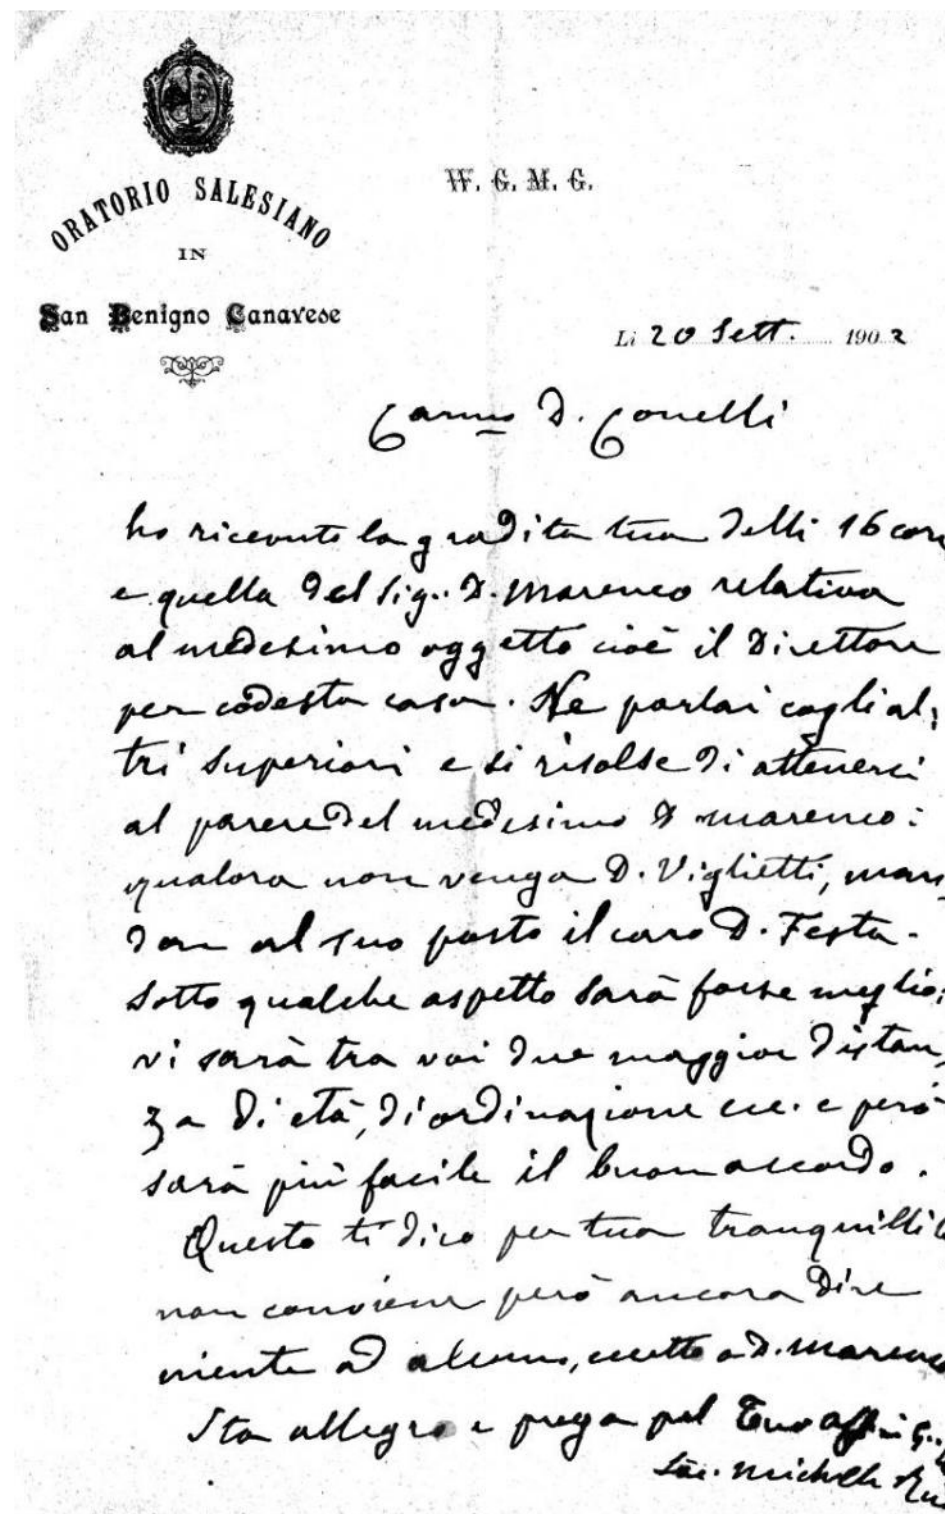 ORATORIO SALESIANO
IN
San Benigno Canavese
W. G. M. G.
Li 20 Sett. 1902
Carmo D. Conelli
ho ricevuto la gradita tua delli 16 corr
e quella del Sig.. D. Marenco relativa
al medesimo oggetto cioè il Direttore
per codesta casa. Ne parlai cogli al-
tri superiori e si risolse di attenersi
al parere del medesimo D Marenco:
qualora non venga D. Viglietti, man-
dare al suo posto il caro D. Festa.
Sotto qualche aspetto sarà forse meglio:
vi sarà tra voi due maggior distan-
za di età, di ordinazione ecc. e però
sarà più facile il buon accordo.
Questo ti dico per tua tranquillità
non conviene però ancora dire
niente ad alcuno, eccetto a D. Marenco
Sta allegro e prega pel Tuo aff in G.
Sac. Michele Rua